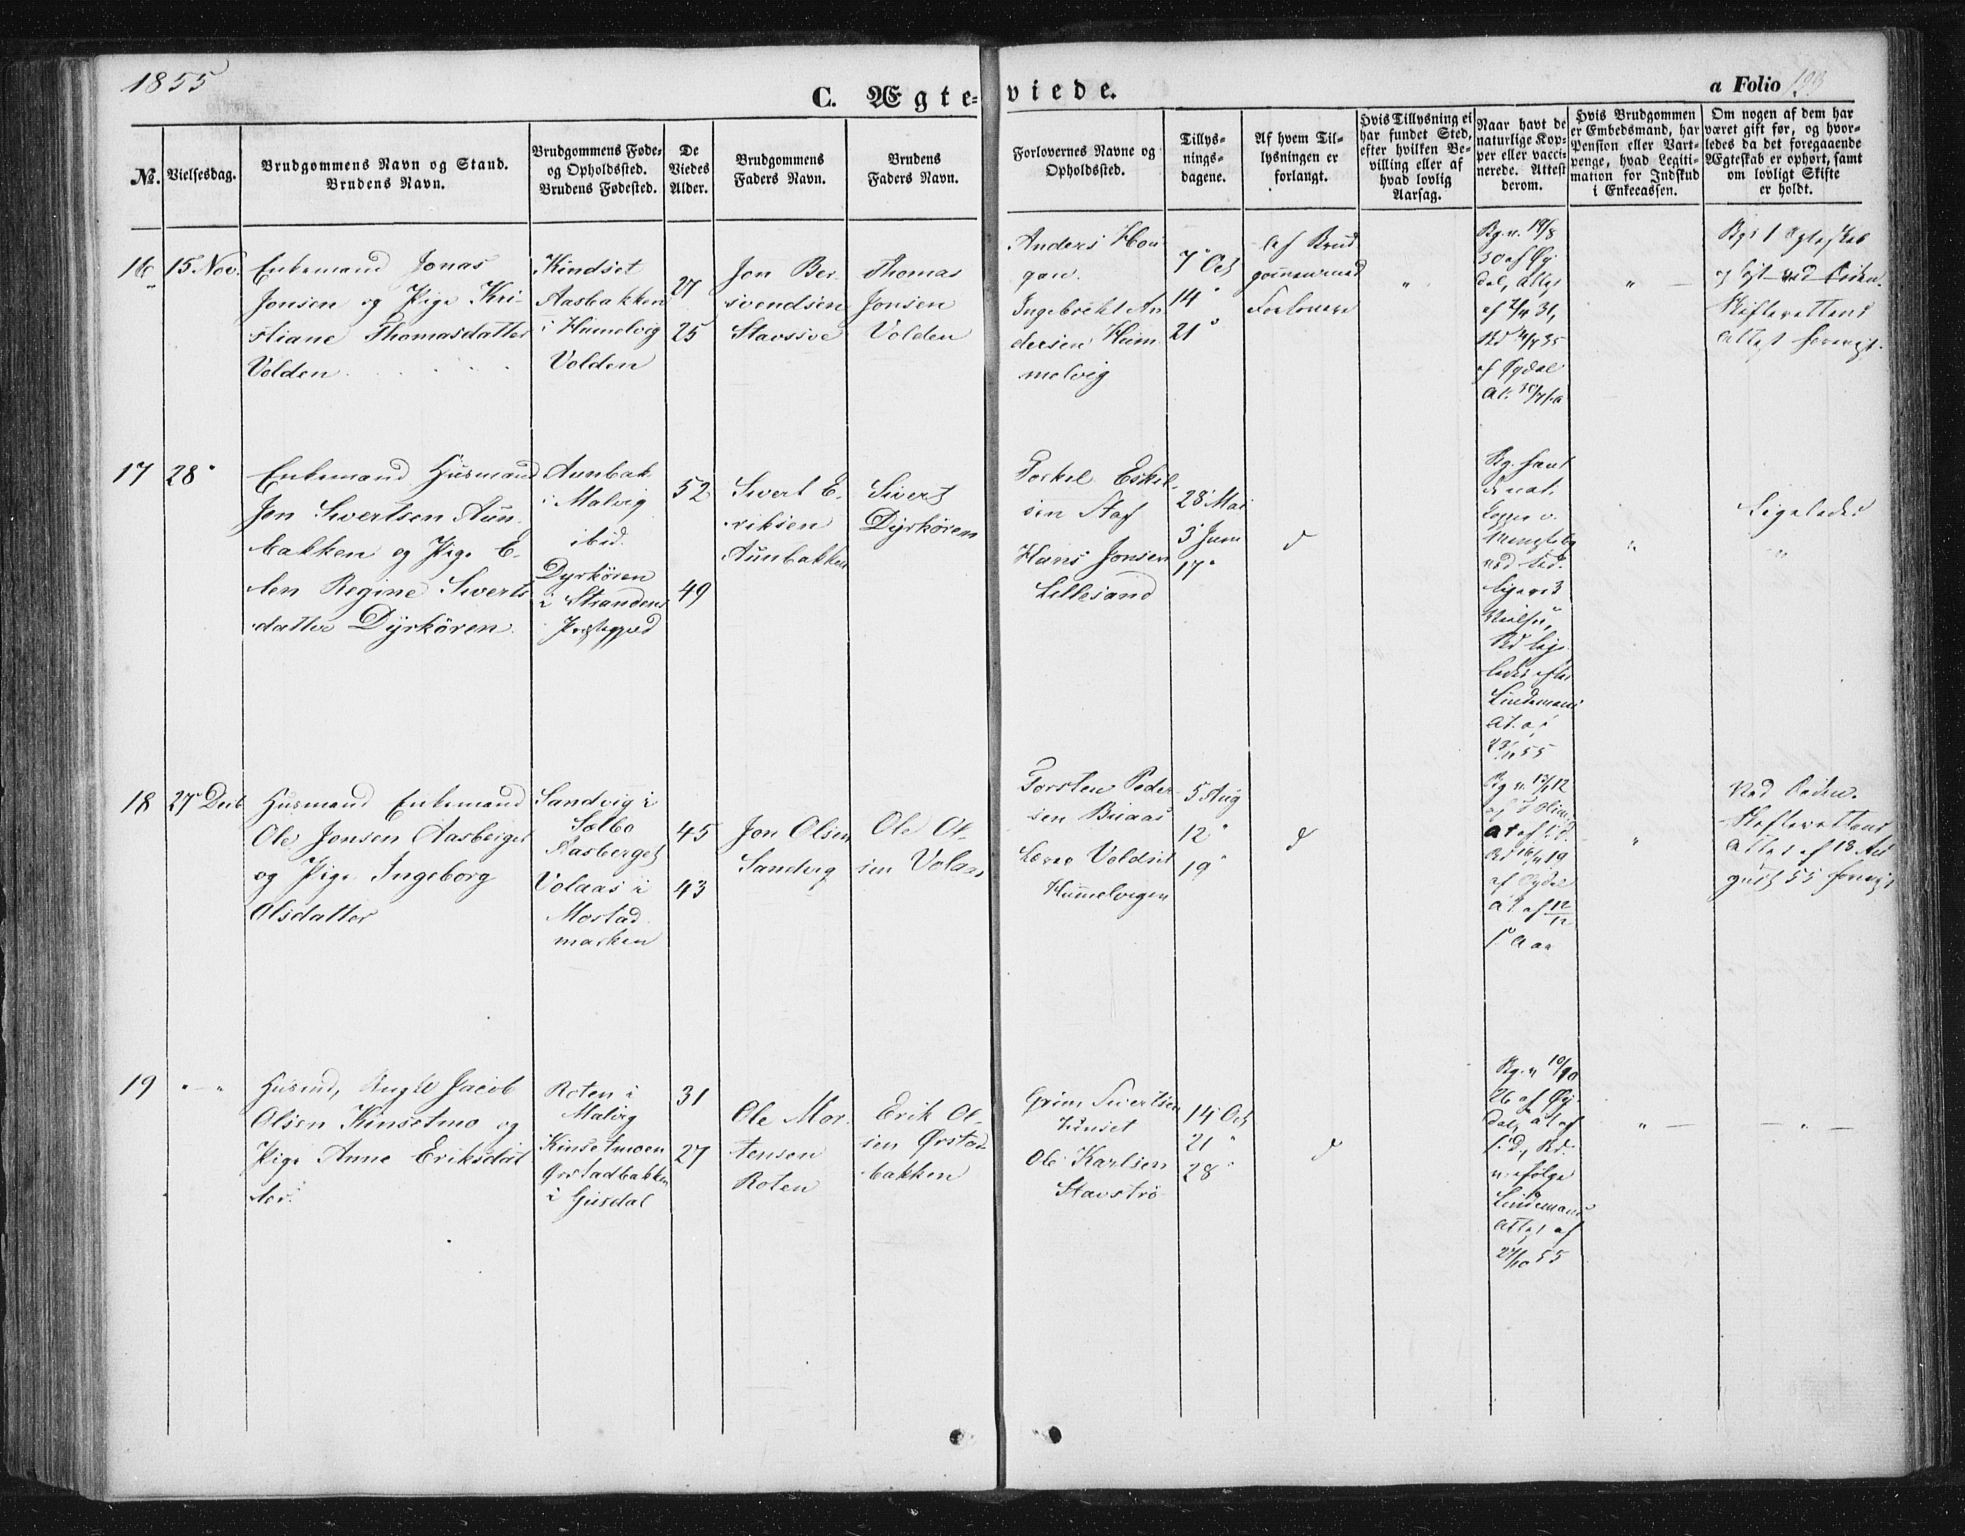 1855
C. Ægteviede.
a Folio
No.
Vielsesdag.
Brudgommens Navn og Stand.
Brudens Navn.
Brudgommens Føde-
og Opholdssted.
Brudens Fødested.
De
Viedes
Alder.
Brudgommens
Faders Navn.
Brudens
Faders Navn.
Forlovernes Navne og
Opholdssted.
Tillys-
nings-
dagene.
Af hvem Til-
lysningen er
forlangt.
Hvis Tillysning ei
har fundet Sted,
efter hvilken Be-
villing eller af
hvad lovlig
Aarsag.
Naar havt de
naturlige Kop-
per eller vacci-
nerede. Attest
derom.
Hvis Brudgommen
er Embedsmand, har
Pension eller Vart-
penge, hvad Legiti-
mation for Indskud
i Enkecassen.
Om nogen af dem har
været gift før, og hvor-
ledes da det foregaaende
Ægteskab er ophørt, samt
om lovligt Skifte
er holdt.
16
15 Nov.
Enkemand Jonas
Jonsen og Pige Kri-
stiane Thomasdatter
Volden
Kindset
Aasbakken
i Humelvig
Volden
27
25
Jon Ber-
svendsen
Stavssve
Thomas
Jonsen
Volden
Anders Hou
gan.
Ingebrikt An
dersen Hum
melvig
7 Oct
14 "
21 "
Af Brud
gommen med
Forlovere
"
Bg. v. 19/8
30 af Øy
dal, Attest
af
af Øydal
"
Skifterettens
Attest forevist.
17
28 "
Enkemand Husmand
Jon Sivertsen Aun
bakken og Pige E-
len Regine Siverts
datter Dyrkören.
Aunbak
i Malvig
ibid.
Dyrkören
i Strandens
Præstegjæld
52
49
Sivert E-
riksen
Aunbakken
Sivert
Dyrkören
Torkel Eskil-
sen Aas
Hans Jonsen
Lillesand
28 Mai
3 Juni
17 "
d
Bg. havt
d. nat.
Lindemans
At. af
55
"
Ligeledes
"
18
27 Decb
Husmand Enkemand
Ole Jonsen Aasberget
og Pige Ingeborg
Olsdatter
Sandvig i
Sælbo
Aasberget
Volaas i
Mostad
marken
45
43
Jon Olsen
Sandvig
Ole Ol-
sen Volaas
Torsten Peder
sen Buaas
Voldset
Hummelvigen
5 Aug
12 "
19 "
d
At af s. d.
af Øydal
At af 12/12
"
Ved Eden.
Skifterettens
Attest af 13 Au
gust 55 forevist
19
" — "
Husmd, Ungkl Jacob
Olsen Kinsetmo og
Pige Anne Eriksdat
ter.
Roten i
Malvig
Kinsetmoen
Ørstadbakken
i Gusdal
31
27
Ole Mor
tensen
Roten
Erik Ol-
sen Ørstad-
bakken
Grim Sivertsen
Kinset
Ole Karlsen
Stavstrø
14 Oct
21 "
28 "
d
26 af Øy
dal, At af
s. D., Bd.
v. ifølge
Lindemans
Attest af
27/10 55
" —
— " —